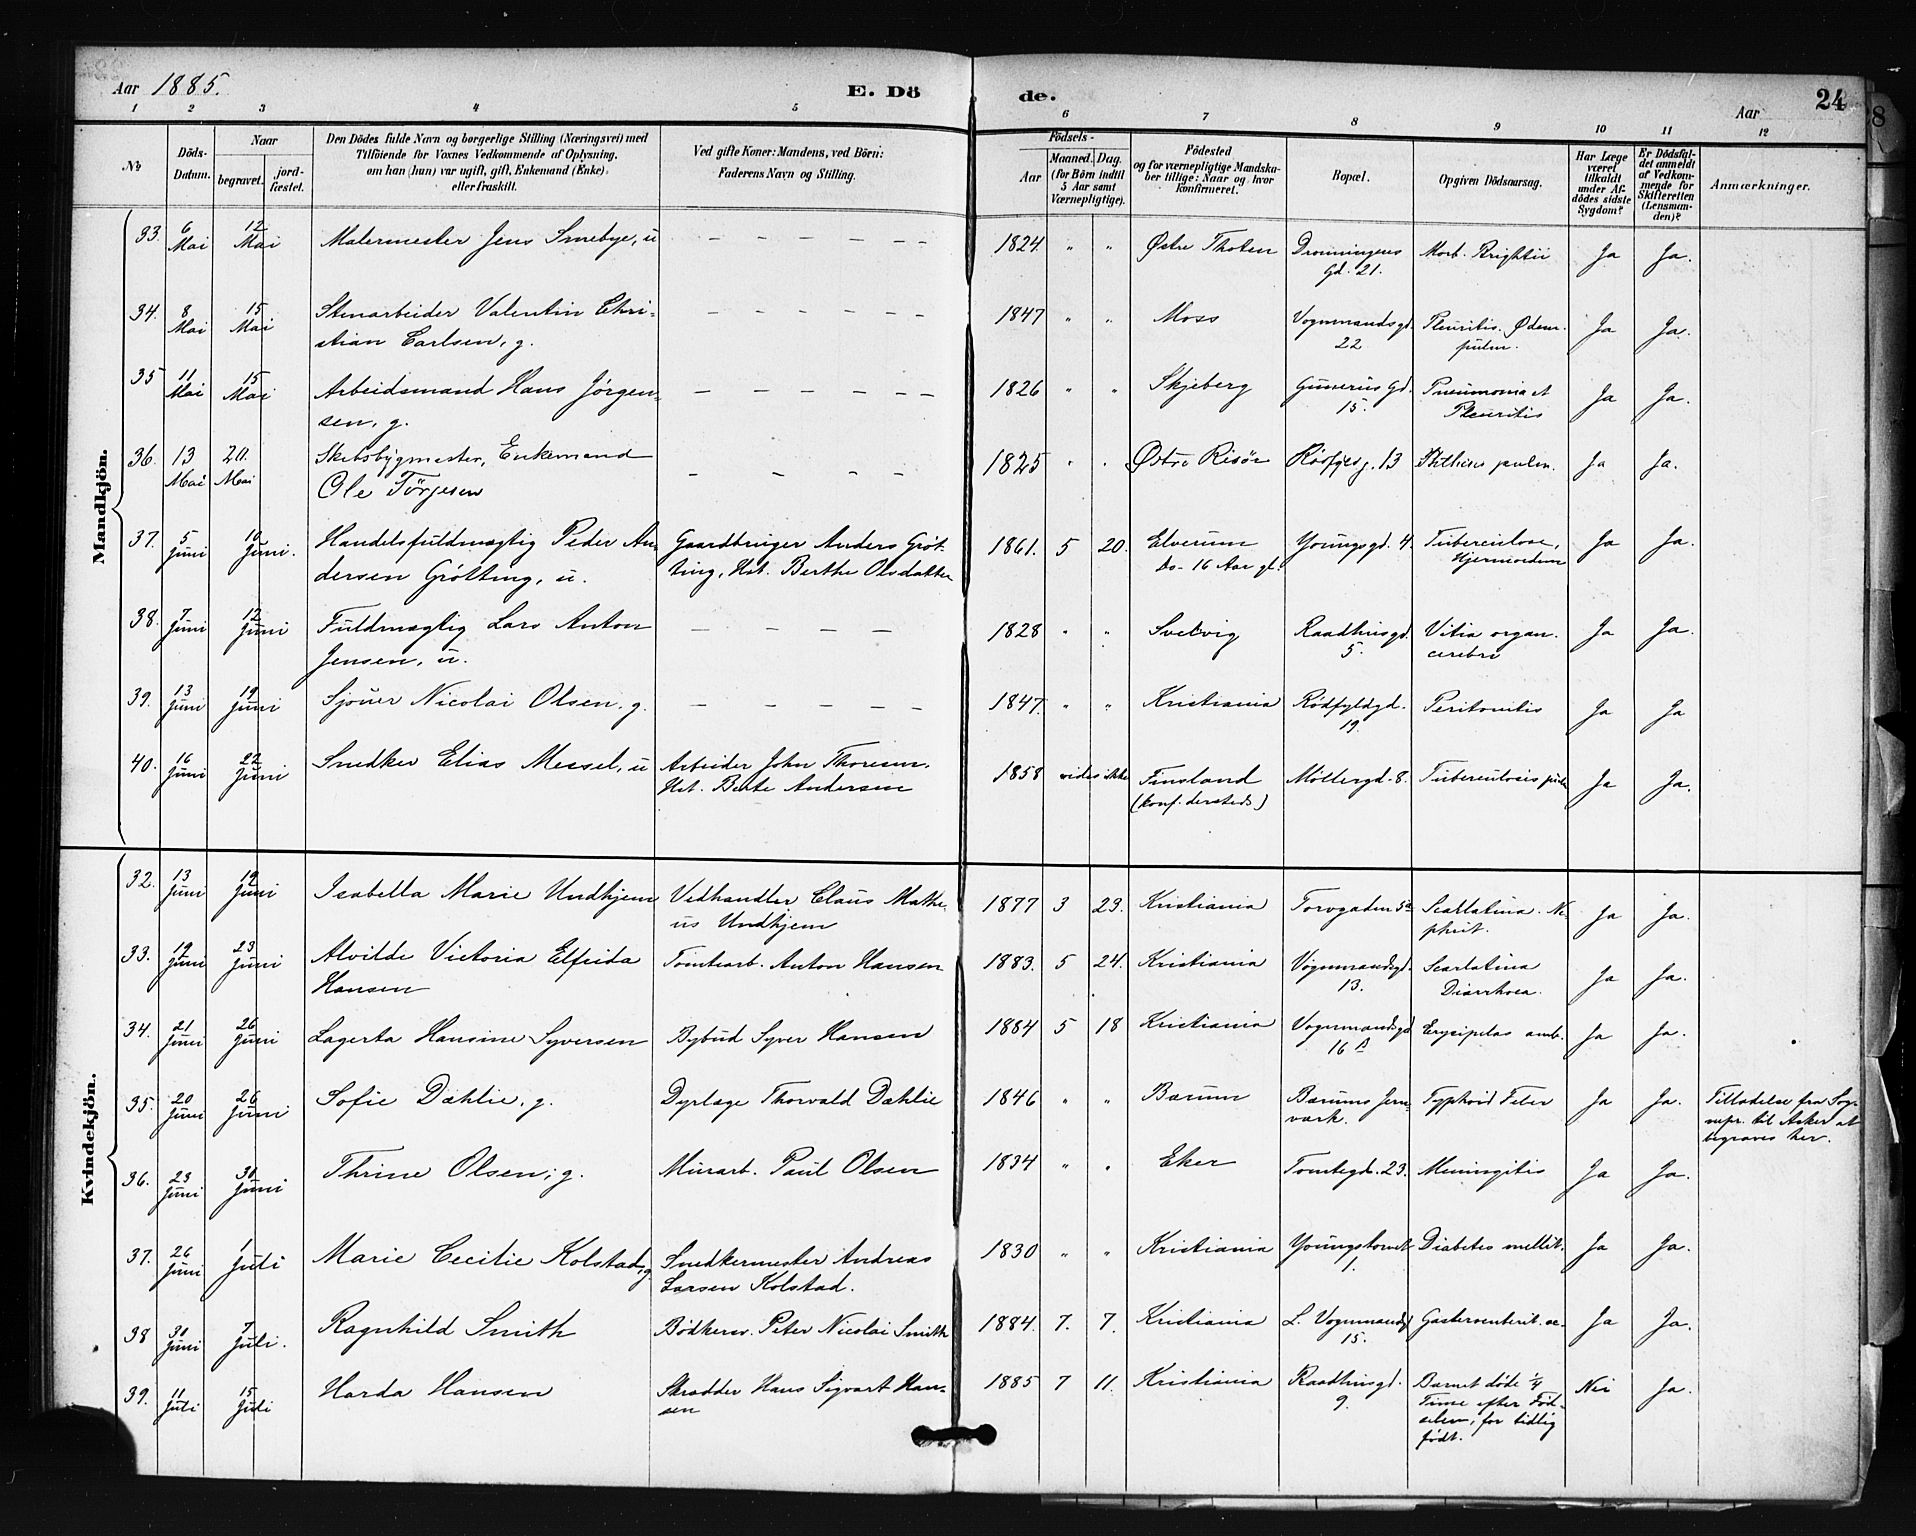 Aar 1885. E. Dö de. Aar 24
1 2 3 4 5 6 7 8 9 10 11 12
No | Döds-Datum. | Naar begravet. | jord-fæstet. | Den Dödes fulde Navn og borgerlige Stilling (Næringsvei) med Tilföiende for Voxnes Vedkommende af Oplysning, om han (hun) var ugift, gift, Enkemand (Enke), eller fraskilt. | Ved gifte Koner: Mandens, ved Börn: Faderens Navn og Stilling. | Födsels- Aar | Maaned. Dag. (for Börn indtil 5 Aar samt Værnepligtige). | Födested og for værnepligtige Mandskaber tillige: Naar og hvor konfirmeret. | Bopæl. | Opgiven Dödsaarsag. | Har Læge været tilkaldt under Afdödes sidste Sygdom? | Er Dödsfaldet anmeldt af Vedkommende for Skifteretten (Lensmanden)? | Anmærkninger.
Mandkjön.
33. 6 Mai 12 Mai Malermester Jens Smebye, u — — — — — — 1824 " " Østre Thoten Dronningens Gd. 21. Morb. Brightii Ja Ja.
34. 8 Mai 15 Mai Stenarbeider Valentin Christian Carlsen, g. — — — — — — 1847 " " Moss Vognmandsgd. 22 Pleuritis. Ødem. pulm. Ja Ja.
35 11 Mai 15 Mai Arbeidsmand Hans Jörgensen, g. — — — — — — 1826 " " Skjeberg Gunerius Gd. 15. Pneumonia et Pleuritis Ja Ja.
36. 13 Mai 20. Mai Skibsbygmester, Enkemand Ole Törjesen — — — — 1825 " " Østre Risör 13 Phthisis pulm. Ja Ja.
37. 5 Juni 10 Juni. Handelsfuldmægtig Peder Andersen Grötting, u. Gaardbruger Anders Grötting, Hst. Berthe Olsdatter 1861. 5 20. Elverum Do- 16 Aar gl. Youngsgd. 4. Tuberculose, Ja Ja.
38. 7 Juni 12 Juni Fuldmægtig Lars Anton Jensen, u. — — — — 1828 " " Svelvig Raadhusgd. 5. Vitia organ. cerebri Ja Ja.
39. 13 Juni 19 Juni Sjouer Nicolai Olsen, g. — — — — — 1847. " " Kristiania Rödfyldgd. 19. Peritonitis Ja Ja
40. 16 Juni 22 Juni Snedker Elias Messel, u Arbeider John Thoresen, Hst. Berte Andersen 1858 vides ikke Finsland (konf. dersteds) Möllergd. 8. Tuberculosis pulm Ja Ja.
Kvindekjön.
32. 13 Juni 19 Juni Isabella Marie Undhjem Vedhandler Claus Matheus Undhjem 1877 3 23. Kristiania Torvgaden 5a Scarlatina. Nephrit. Ja Ja.
33. 19 Juni 23 Juni Alvilde Victoria Elfrida Hansen Tomtearb. Anton Hansen 1883. 5 24. Kristiania Vognmandsgd. 13. Scarlatina Diarrhoea. Ja Ja.
34. 21 Juni 26 Juni Lagerta Hansine Syversen Bybud Syver Hansen 1884 5 18 Kristiania Vognmandsgd 16 B Erysipelas amb. Ja Ja.
35. 20 Juni 26 Juni Sofie Dæhlie, g. Dyrlæge Thorvald Dæhlie 1846 " " Bærum Bærums Jernværk. Typhoid Feber Ja Ja. Tilladelse fra Sognepr. til Asker at begraves her.
36. 23 Juni 30 Juni Thrine Olsen, g. Murarb. Paul Olsen 1834 " " Eker Tomtegd. 23. Meningitis Ja Ja.
37. 26 Juni 1 Juli Marie Cecilie Kolstad, g Snedkermester Andreas Larsen Kolstad. 1830 " " Kristiania Youngstorvet 1. Diabetes mellit. Ja Ja.
38 30 Juni 7 Juli. Ragnhild Smith Bödkersv. Peter Nicolai Smith 1884. 7. 7. Kristiania L. Vognmandsgd 15. Gasteroenterit. ac. Ja Ja.
39. 11 Juli 15 Juli Harda Hansen Skrædder Hans Sigvart Hansen 1885 7 11. Kristiania Raadhusgd. 9. Barnet döde 1/4 Time efter Födselen, for tidlig födt. Nei Ja.